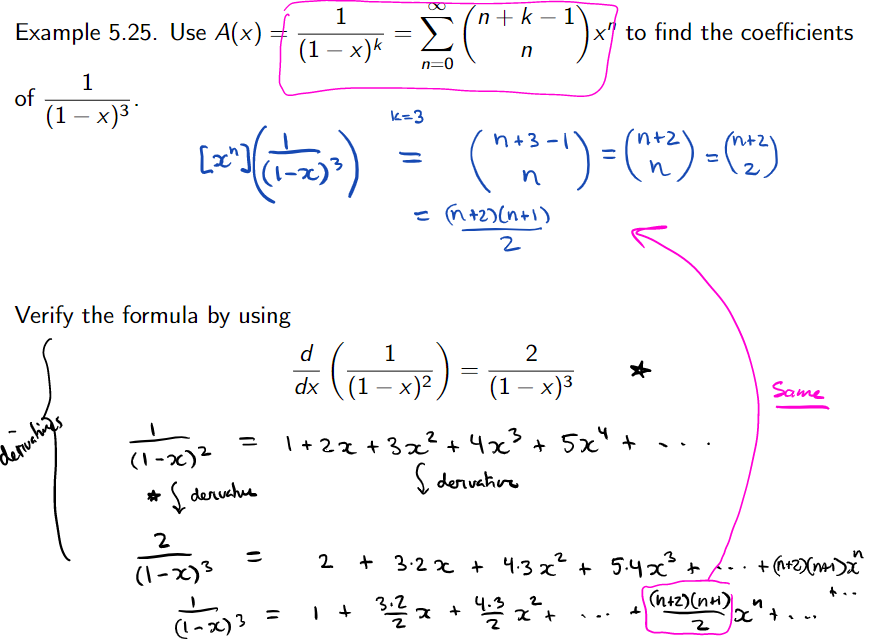 Example 5.25. Use A(x) = 1/(1 − x)^k = ∑_{n=0}^{∞} (n + k − 1 choose n) x^n to find the coefficients
of 1/(1 − x)^3.
k=3
[x^n](1/(1-x)^3) = (n+3-1 choose n) = (n+2 choose n) = (n+2 choose 2)
= (n+2)(n+1)/2
Verify the formula by using
d/dx (1/(1 − x)^2) = 2/(1 − x)^3 *
Same
derivatives
1/(1-x)^2 = 1+2x+3x^2+4x^3+5x^4+ ...
* ⟆ derivative ⟆ derivative
2/(1-x)^3 = 2 + 3·2x + 4·3x^2 + 5·4x^3 + ... + (n+2)(n+1)x^n + ...
1/(1-x)^3 = 1 + 3·2/2 x + 4·3/2 x^2 + ... + (n+2)(n+1)/2 x^n + ...